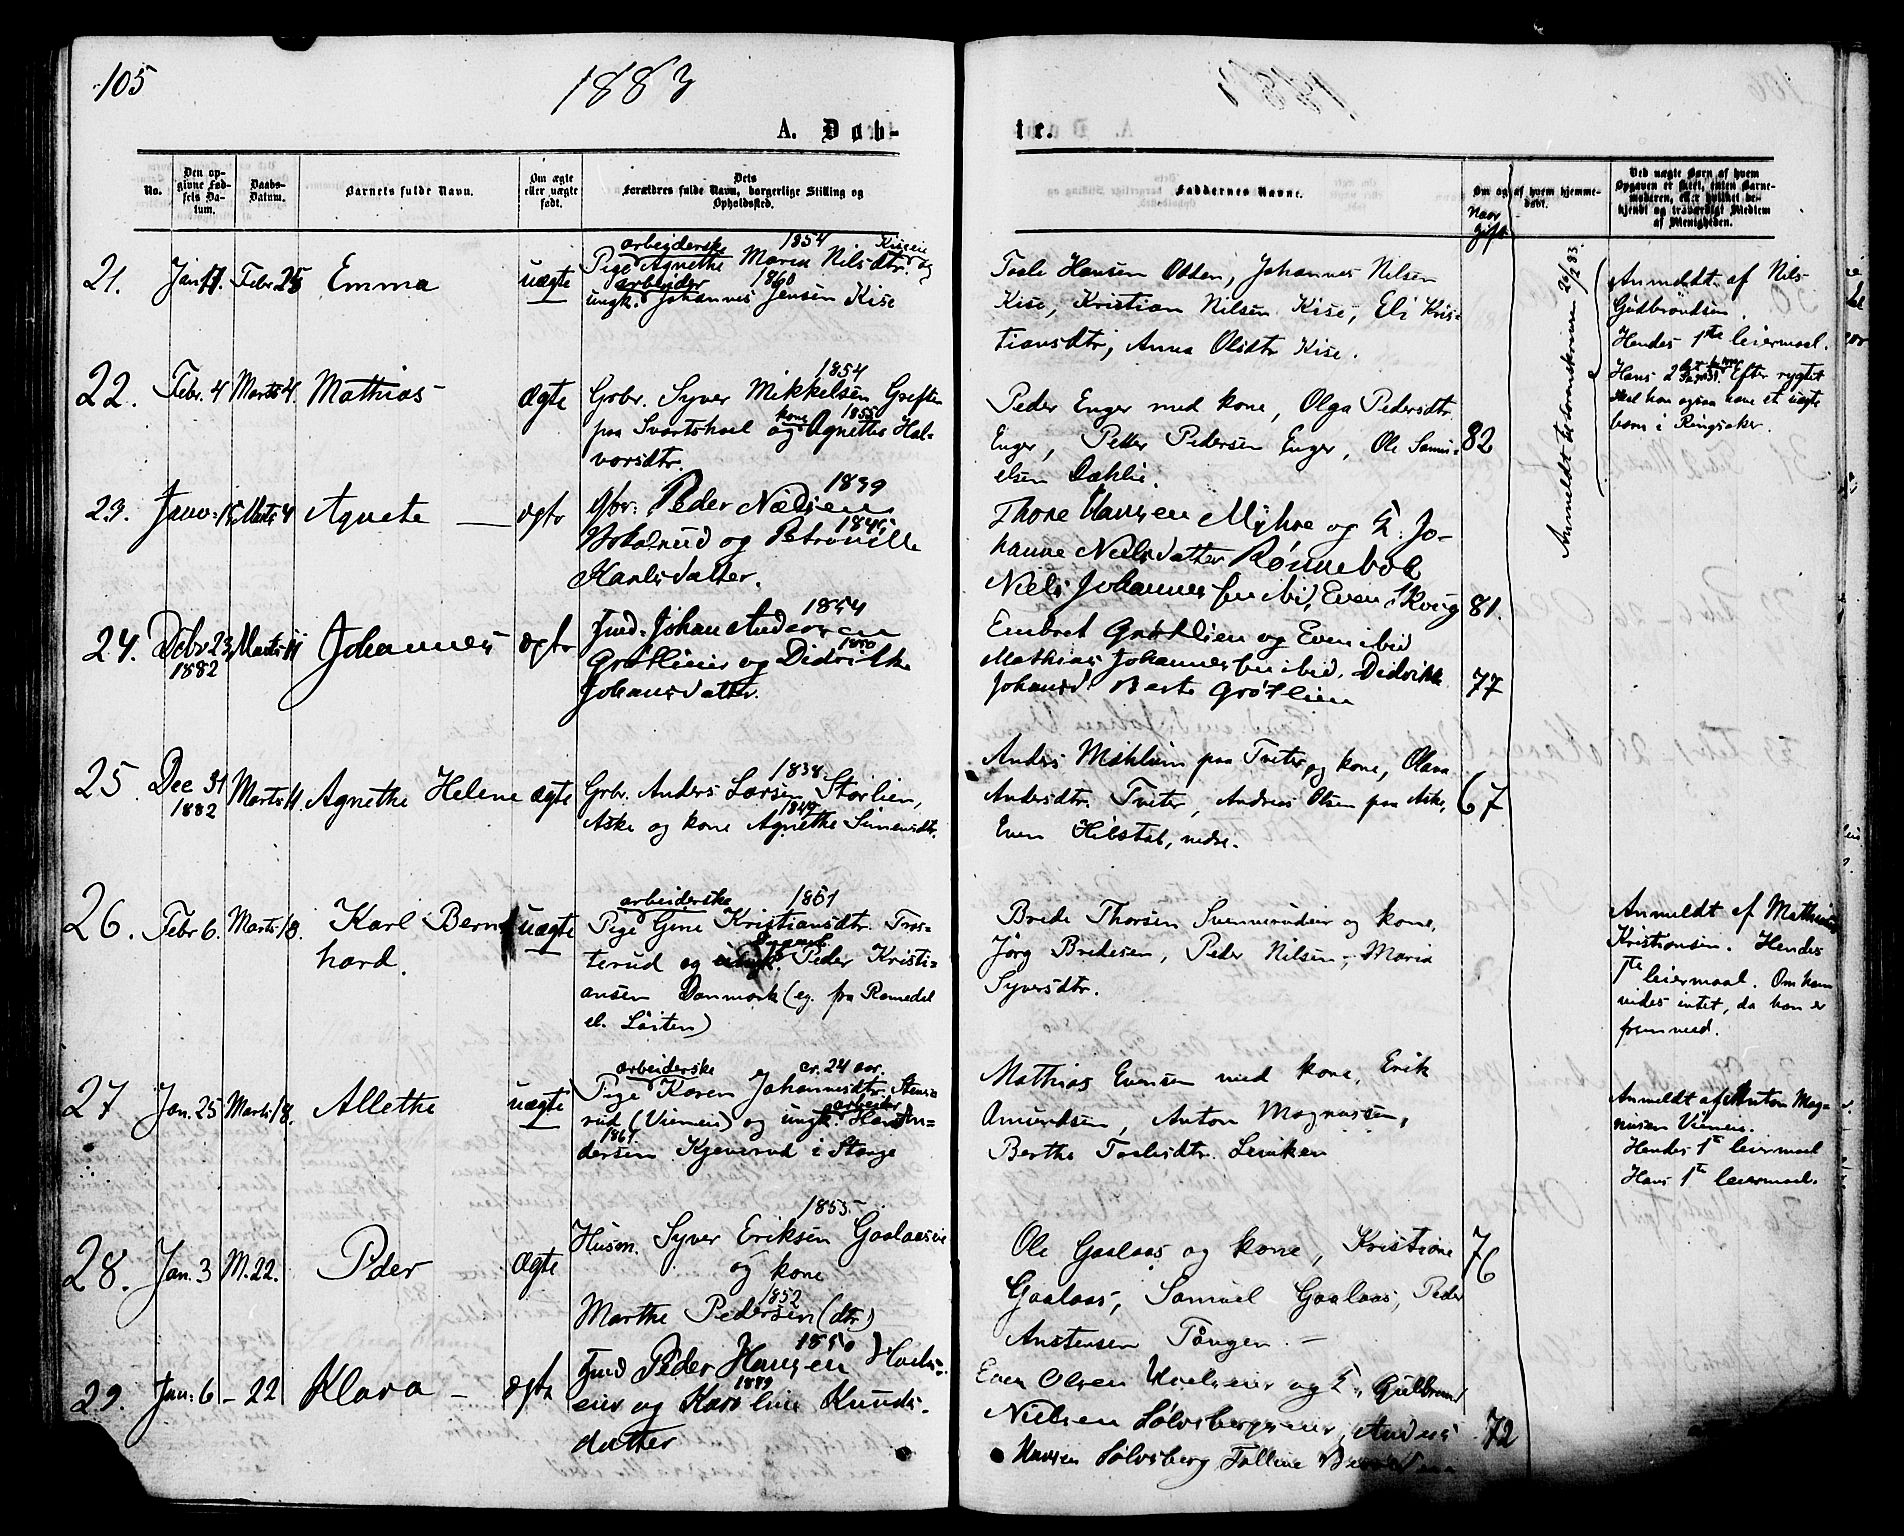 105
1883
A. Døb-
te.
No.
Den op-
givne Fød-
sels Da-
tum.
Daabs-
Datum.
Barnets fulde Navn.
Om ægte
eller uægte
født.
Dets
Forældres fulde Navn, borgerlige Stilling og
Opholdssted.
Faddernes Navne.
Om og af hvem hjemme-
døbt.
Naar
gift
Ved uægte Børn af hvem
Opgaven er skeet, enten Barne-
moderen, eller hvilket be-
kjendt og troværdigt Medlem
af Menigheden.
21. Jan 11. Febr 25 Emma uægte
arbeiderske 1854
Pige Agnethe Maren Nilsdtr. Kiseeie og
arbeider 1860
ungk. Johannes Jensen Kise
Tosle Hansen Odden, Johannes Nilsen
Kise, Kristian Nilsen Kise, Eli Kris-
tiansdtr, Anna Olsdtr Kise.
Anmeldt af Nils
Gudbrandsen.
Hendes 1ste leiermaal.
Hans 2 Efter rygtet
skal han ogsaa have et uægte
barn i Ringsaker.
22. Febr. 4 Marts 4. Mathias ægte
1854
Gbr. Syver Mikkelsen Greften
kone 1855
paa Svartshoel og Agnethe Hal-
vorsdtr.
Peder Enger med kone, Olga Pedersdtr.
Enger, Petter Pedersen Enger, Ole Samu-
elsen Dæhlie.
82
23. Janv: 15 Marts 4 Agnete — ægte
1849
Gbr: Peder Nielsen
1845
og Petronille
Karlsdatter.
Thore Hansen Myhre og K. Jo-
hanne Nielsdatter Rønnebæk
Niels Johannessen ibid, Even Skoug
81.
24. Debr 23 Marts 11 Johannes ægte
1882
1854
Jnd. Johan Andersen
1850
Grøtlieie og Didrikke
Johansdatter.
Embret Grøtlien og Even ibid
Mathias Johannessen ibid. Didrikke
Johansd. Berte Grøtlien
77
25. Dec 31 Marts 11. Agnethe Helene ægte
1882
1838
Gbr. Anders Larsen Storlien,
1849
Aske og kone Agnethe Simensdtr.
Anders Mæhlum paa Tveter og kone, Olava
Andersdtr. Tveter, Andreas Olsen paa Aske,
Even Hilstad, nedre.
67
26. Febr 6. Marts 18. Karl Bern-
hard. uægte
arbeiderske 1861
Pige Gine Kristiansdtr. Tros-
terud og Peder Kristi-
ansen Danmark (eg. fra Romedal
el. Löiten)
Brede Thorsen Svennerudeie og kone,
Jörg Bredesen, Peder Nilsen, Maria
Syversdtr.
Anmeldt af Mathias
Kristiansen. Hendes
1te leiermaal. Om ham
vides intet, da han er
fremmed.
27 Jan. 25 Marts 18. Alethe uægte
arbeiderske cr. 24 aar.
Pige Karen Johannesdtr. Stens-
arbeider
rud (Vieneie) og ungk. Hans An-
1861
dersen Kjenerud i Stange
Mathias Evensen med kone, Erik
Amundsen, Anton Magnussen,
Berthe Toslesdtr. Leviken
Anmeldt af Anton Mag-
nusen Vienen.
Hendes 1te leiermaal
Hans 1te leiermaal.
28. Jan. 3 M. 22. Peder ægte
1855
Husm. Syver Eriksen Gaalaaseie
og kone
1852
Marthe Pedersen (dtr)
Ole Gaalaas og kone, Kristiane
Gaalaas, Samuel Gaalaas, Peder
Anstensen Tangen. —
76
29. Jan: 6 — 22 Klara — ægte
1850
Jnd Peder Hansen Hvels-
1849
eie og Karoline Knuds-
datter
Even Olsen Hvelseie og K., Gulbrand
Nielsen Sølvsbergseie, Anders
Hansen Sølvsberg Talline
72
Anmeldt til Lensmanden 26/12 83.